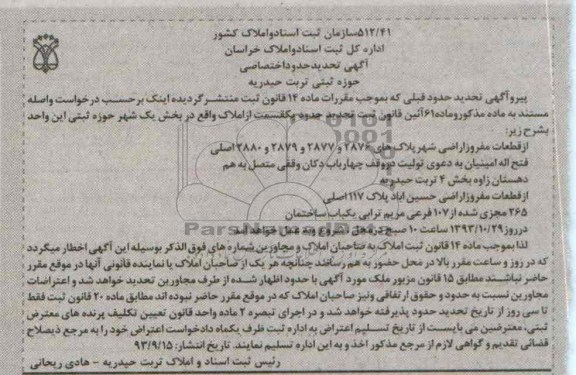 ۵۱۲/۴۱سازمان ثبت اسنادواملاک کشور
اداره کل ثبت اسنادواملاک خراسان
آگهی تحدیدحدوداختصاصی
حوزه ثبتی تربت حیدریه
پیروآگهی تحدید حدود قبلی که بموجب مقررات ماده ۱۴ قانون ثبت منتشرگردیده اینک برحسب درخواست واصله
مستند به ماده مذکوروماده۶۱آئین قانون ثبت تحدید حدود یکقسمت ازاملاک واقع در بخش یک شهر حوزه ثبتی این واحد
بشرح زیر:
ازقطعات مفروزاراضی شهرپلاک های ۲۸۷۶ و ۲۸۷۷ و ۲۸۷۹ و ۲۸۸۰ اصلی
فتح اله امینیان به دعوی تولیت دروقف چهارباب دکان وقفی متصل به هم
دهستان زاوه بخش ۴ تربت حیدریه
ازقطعات مفروزاراضی حسین اباد پلاک ۱۱۷ اصلی
۲۶۵ مجزی شده از۱۰۷ فرعی مریم ترابی یکباب ساختمان
درروز ۱۳۹۳/۱۰/۲۹ ساعت ۱۰ صبح در محل شروع و به عمل خواهد آمد
لذا بموجب ماده ۱۴ قانون ثبت املاک به صاحبان املاک و مجاورین شماره های فوق الذکر بوسیله این آگهی اخطار میگردد
که در روز و ساعت مقرر بالا در محل حضور به هم رسانند چنانچه هر یک از صاحبان املاک یا نماینده قانونی آنها در موقع مقرر
حاضر نباشند مطابق ۱۵ قانون مزبور ملک مورد آگهی با حدود اظهار شده از طرف مجاورین تحدید خواهد شد و اعتراضات
مجاورین نسبت به حدود و حقوق ارتفاقی ونیز صاحبان املاک که در موقع مقرر حاضر نبوده اند مطابق ماده ۲۰ قانون ثبت فقط
تا سی روز از تاریخ تحدید حدود پذیرفته خواهد شد و در اجرای تبصره ۲ ماده واحد قانون تعیین تکلیف پرنده های معترض
ثبتی، معترضین می بایست از تاریخ تسلیم اعتراض به اداره ثبت ظرف یکماه دادخواست اعتراض خود را به مرجع ذیصلاح
قضائی تقدیم و گواهی لازم از مرجع مذکور اخذ و به این اداره تسلیم نمایند. تاریخ انتشار: ۹۳/۹/۱۵
رئیس ثبت اسناد و املاک تربت حیدریه - هادی ریحانی